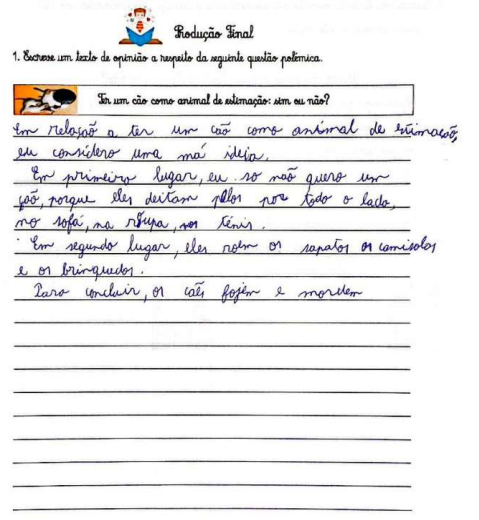 Produção Final
1. Escreve um texto de opinião a respeito da seguinte questão polémica.
Ter um cão como animal de estimação: sim ou não?
Em relaçaõ a ter um caõ como animal de estimação,
eu considero uma má ideia.
Em primeiro lugar, eu so naõ quero um
çaõ, porque eles deitam pêlos por todo o lado,
no sofá, na roupa, nos ténis.
Em segundo lugar, eles roem os sapatos os camisolas
e os brinquedos.
Para concluir, os caẽs fojem e mordem